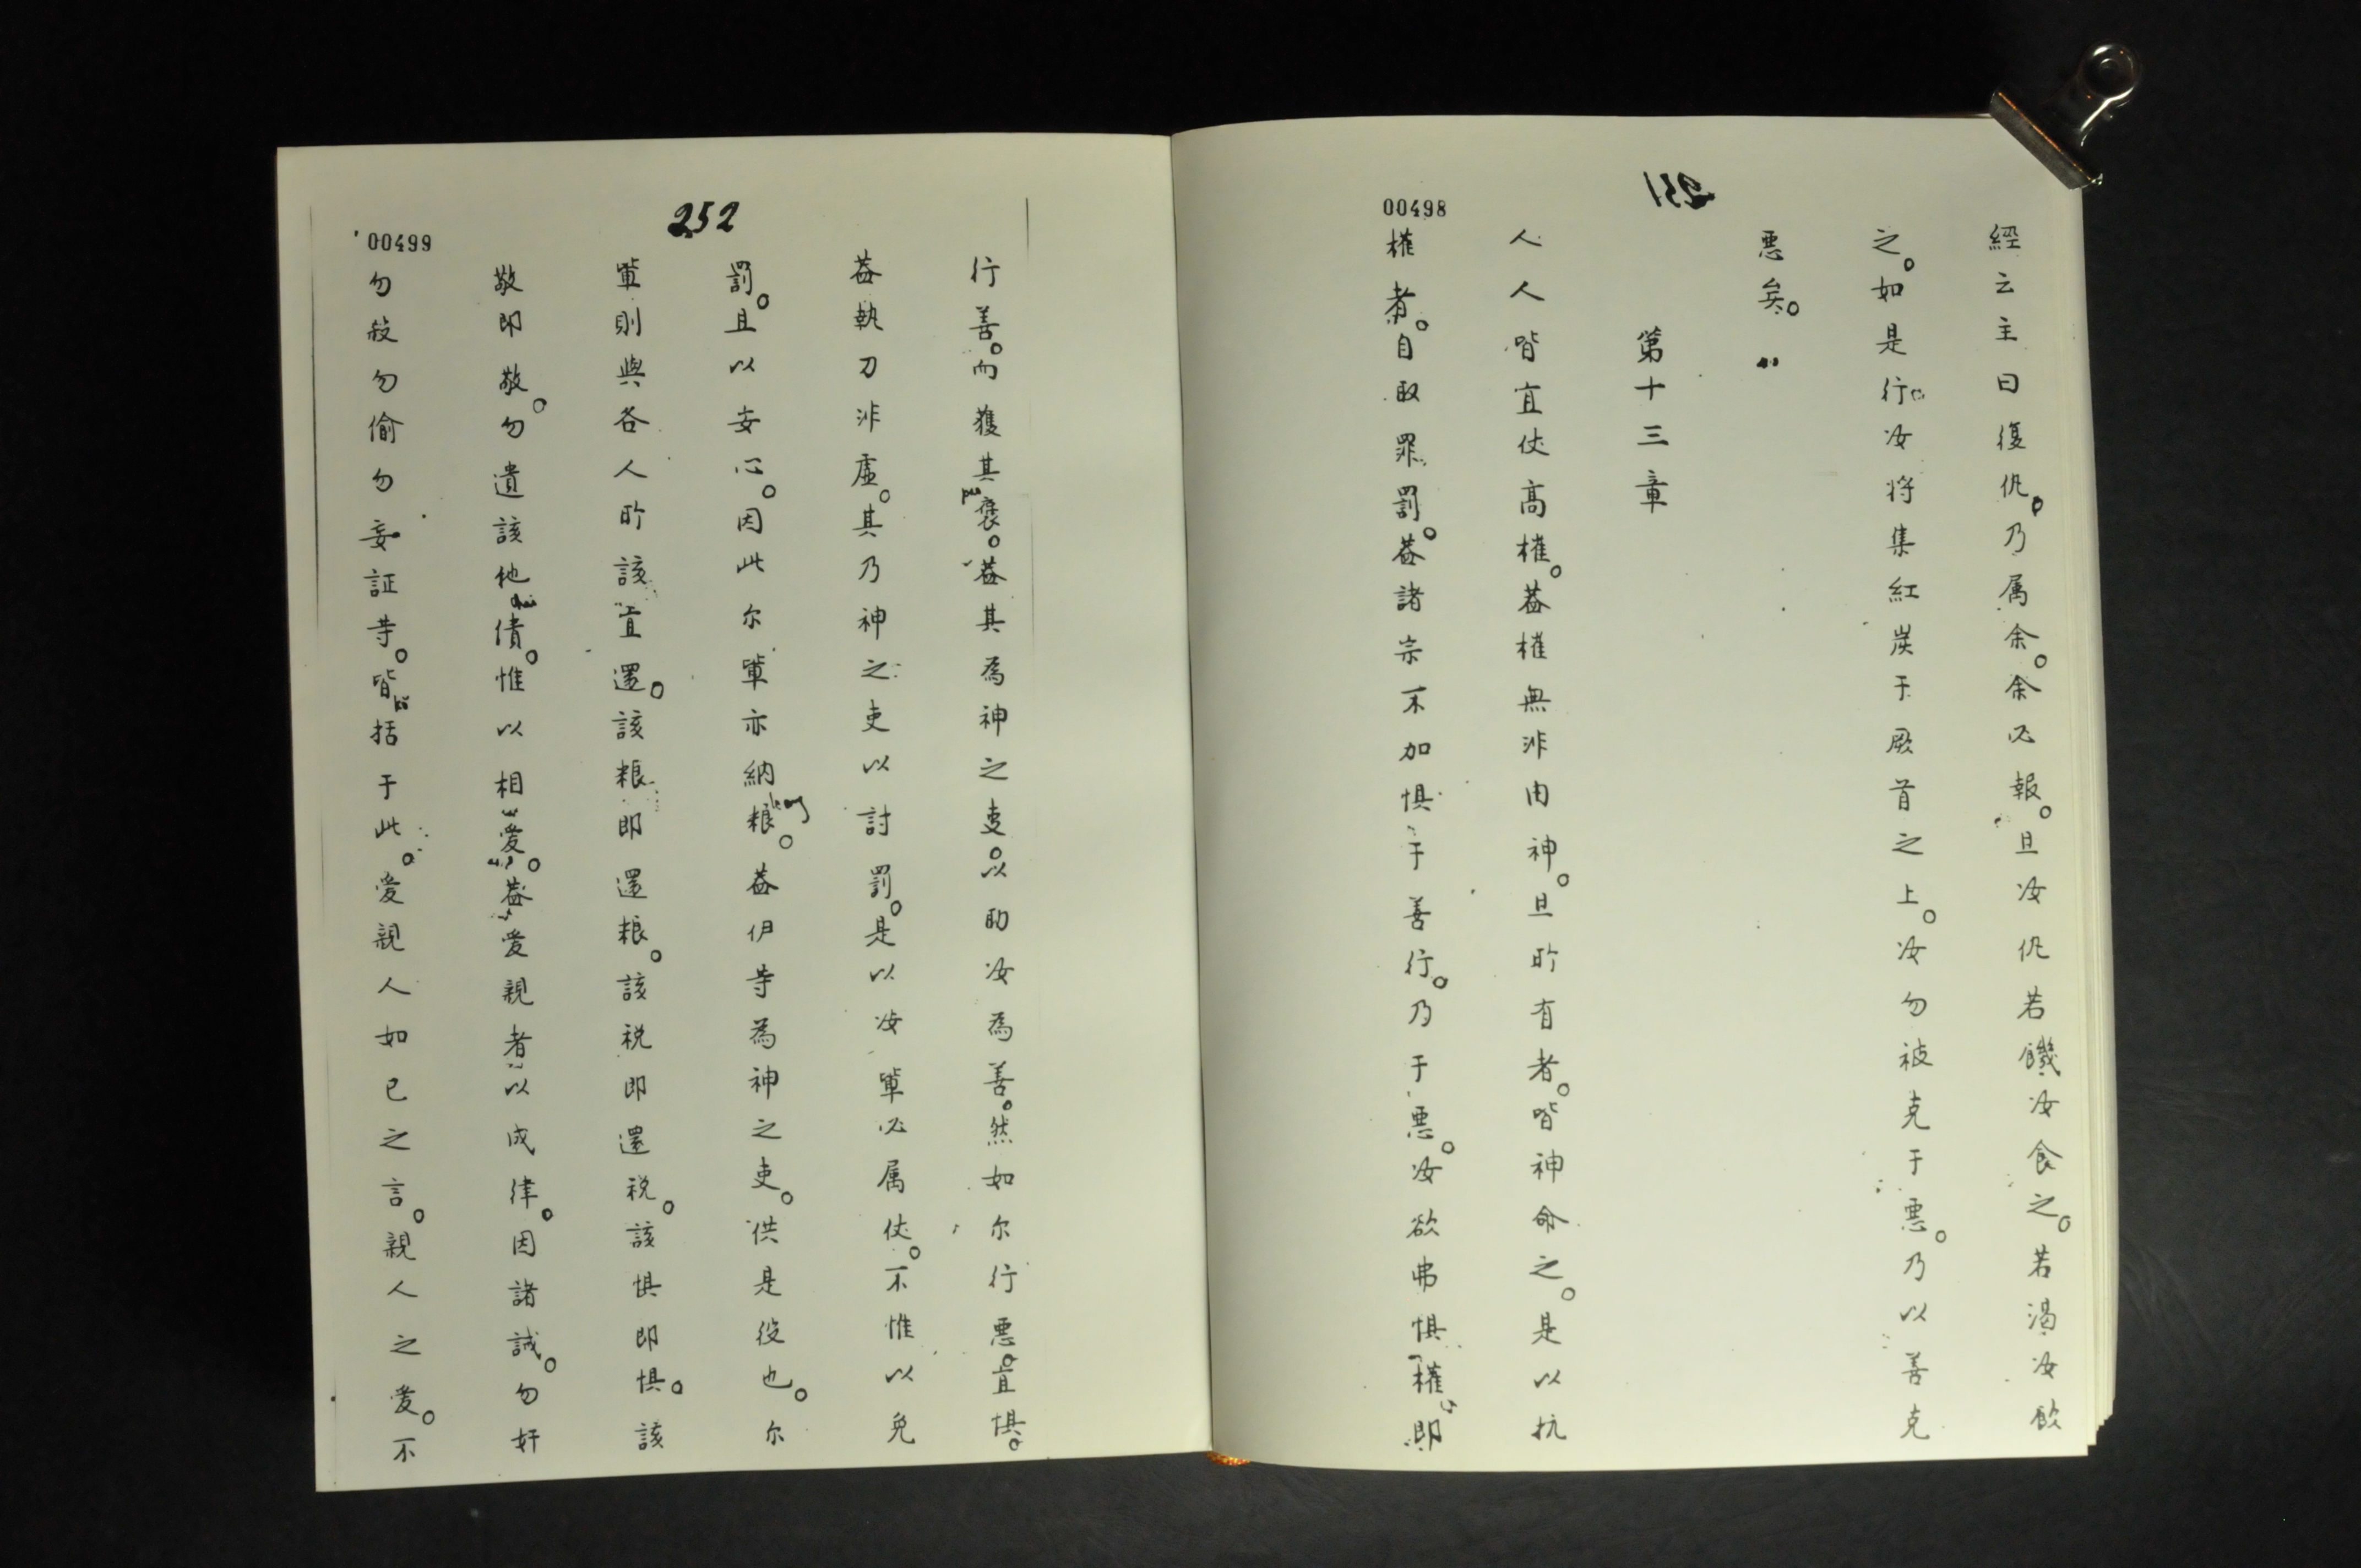 251
00498
經云主曰復仇。乃属余。余必報。旦汝仇若饑汝食之。若渴汝飲
之。如是行。汝将集紅炭于厥首之上。汝勿被克于悪。乃以善克
悪矣。
第十三章
人人皆宜伏高權。葢權無非由神。旦所有者。皆神命之。是以抗
權者。自取罪罰。葢諸宗不加惧于善行。乃于悪。汝欲弗惧權。即
252
00499
行善。而獲其褒。葢其為神之吏。以助汝為善。然如尔行悪。宜惧。
葢執刀非虚。其乃神之吏以討罰。是以汝軰必属伏。不惟以免
罰。且以安心。因此尔軰亦納粮。葢伊等為神之吏。供是役也。尔
軰則與各人所該宜還。該粮即還粮。該税即還税。該惧即惧。該
敬即敬。勿遺該他債。惟以相愛。葢愛親者以成律。因諸誡。勿奸
勿殺勿偷勿妄証等。皆括于此。愛親人如己之言。親人之愛。不